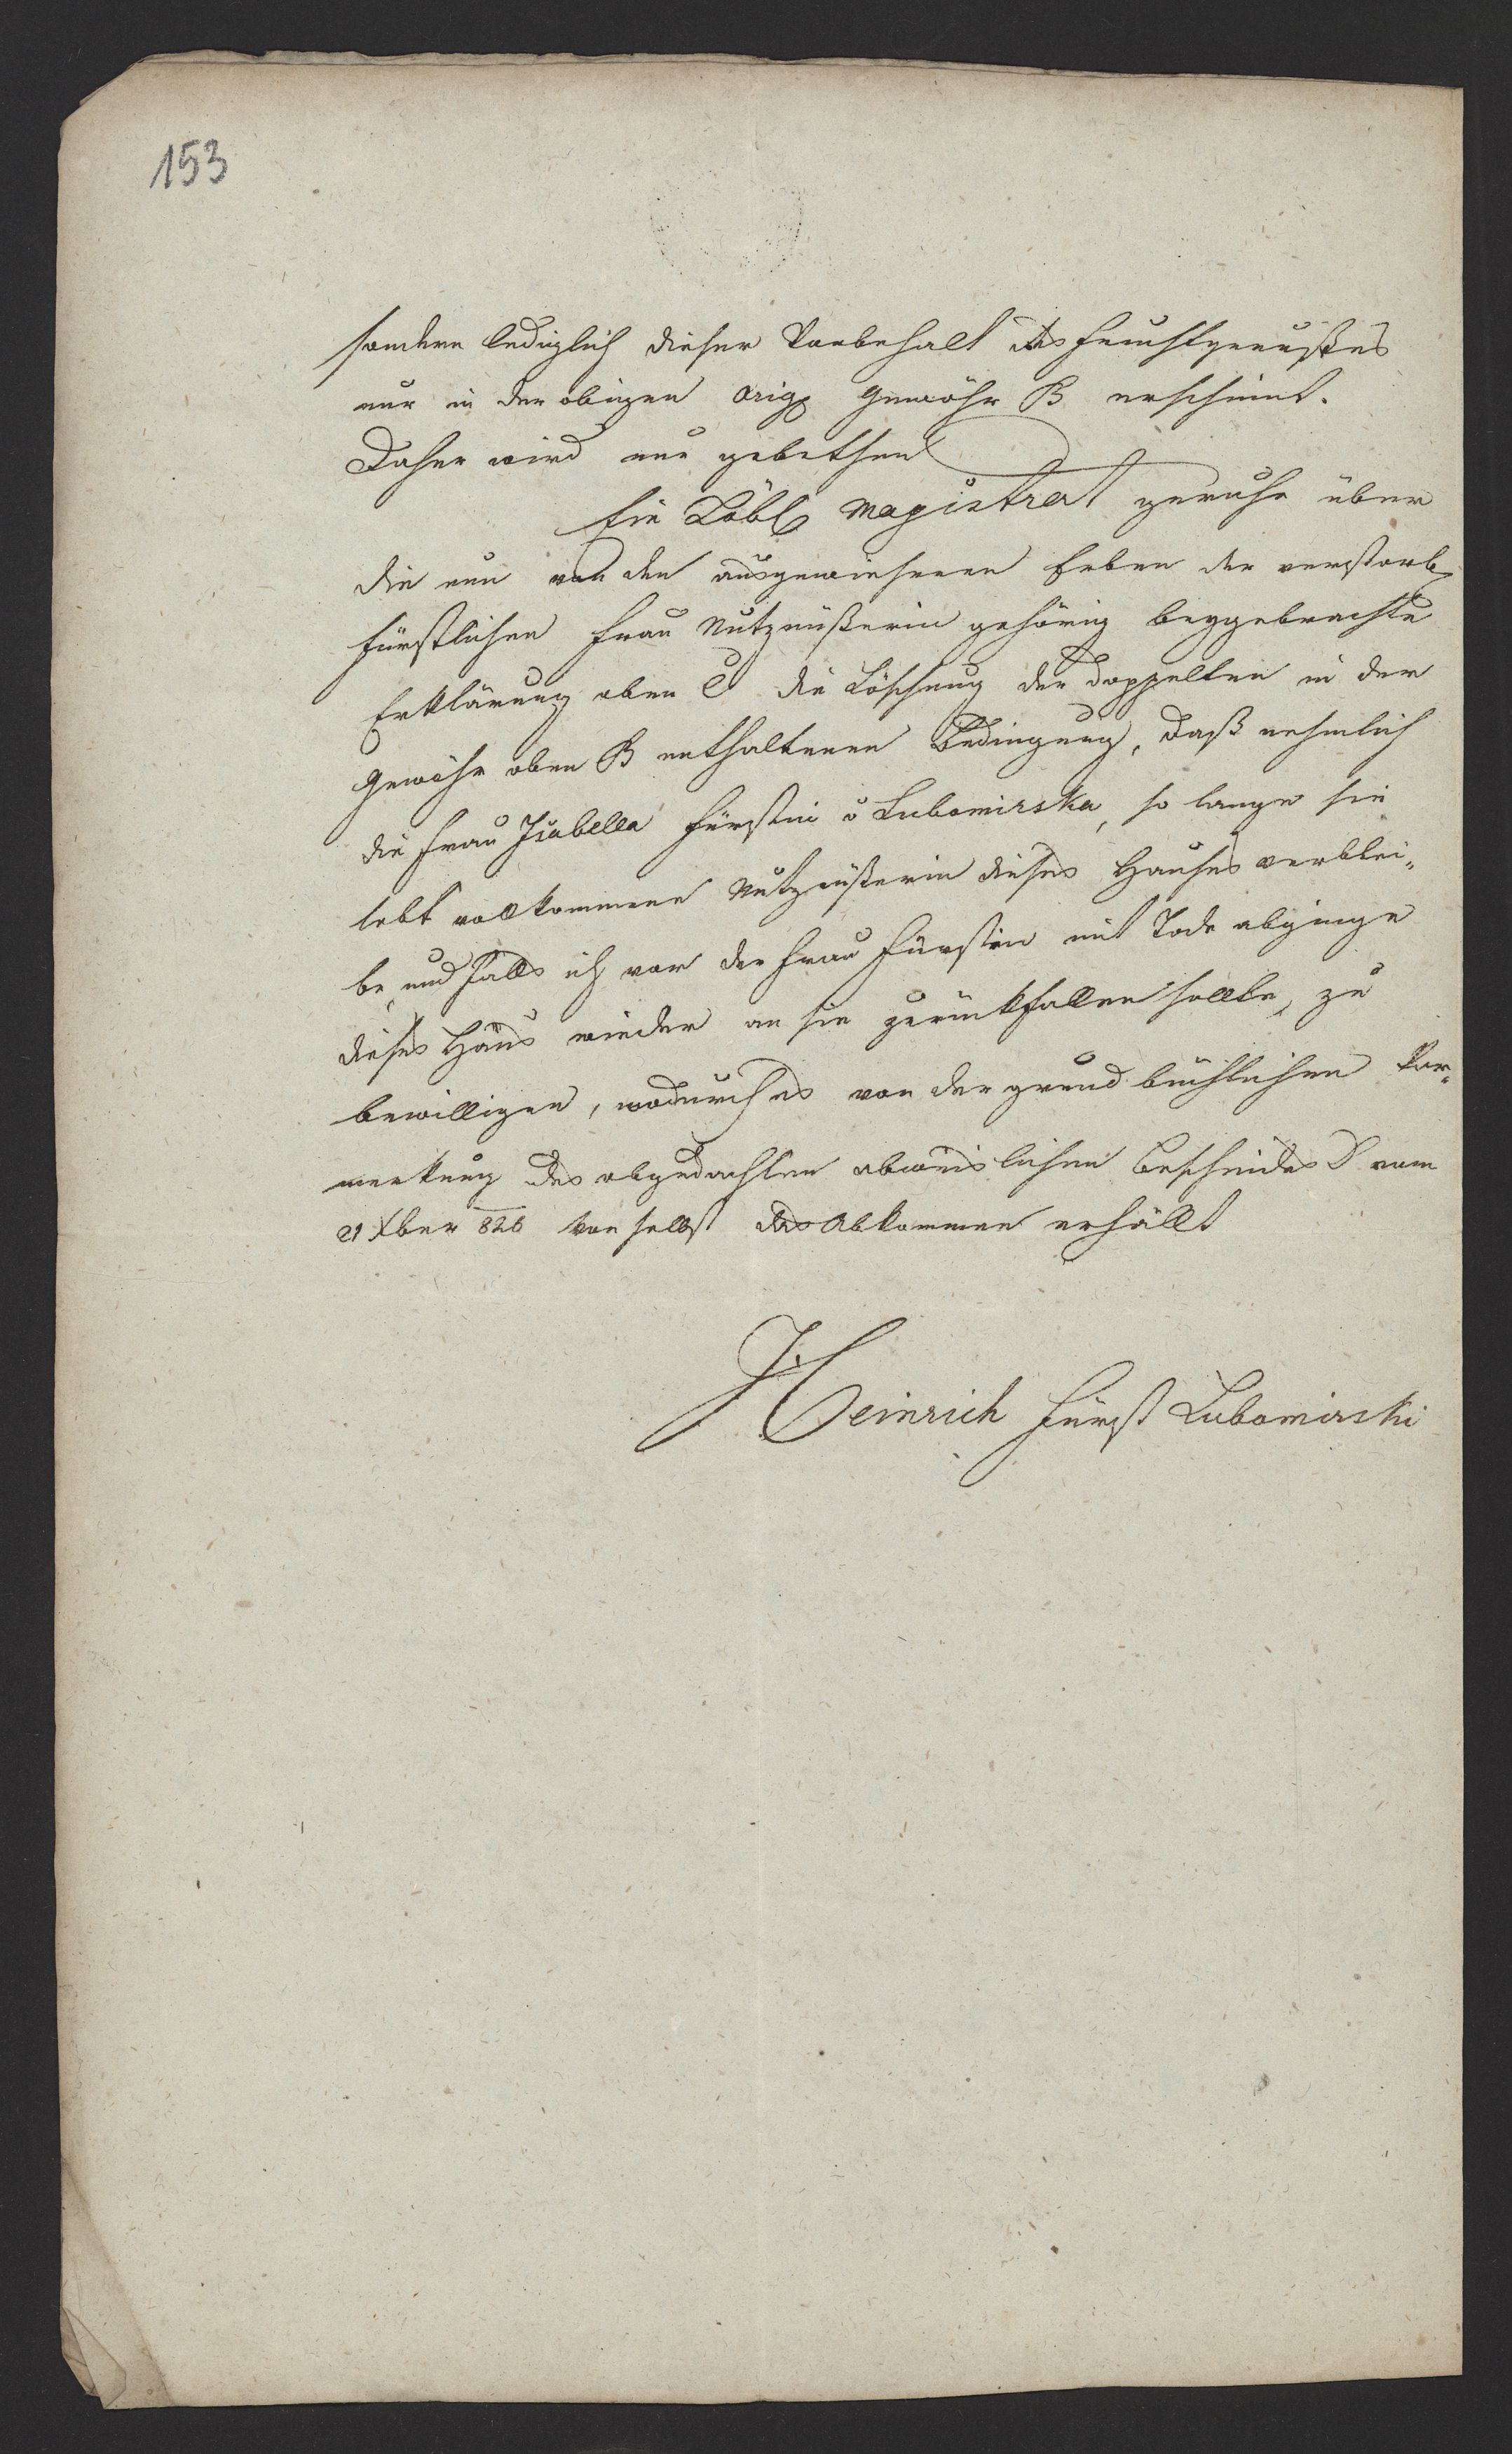 153
sondern lediglich dieser Vorbehalt des Fruchtgenußes
nur in der obigen orig Gewähr B erscheint.
Daher wird nur gebethen
Ein Löbl Magistrat geruhe über
die nun von den ausgewiesenen Erben der verstorb
fürstlichen Frau Nutznüßerin gehörig beygebrachte
Erklärung oben C die Löschung der doppelten in der
Gewähr oben B enthaltenen Bedingung, daß nehmlich
die Frau Isabella Fürstin v Lubomirska, so lange sie
lebt vollkommene Nutznüßerin dieses Hauses verblei-
be, und falls ich vor der Frau Fürstin mit Tode abginge
dieses Haus wieder an sie zurückfallen sollte, zu
bewilligen, wodurch es von der grundbüchlichen Vor-
merkung des obgedachten abweislichen Bescheides D vom
21 Xber 826 von selbst das Abkommen erhällt
Heinrich Fürst Lubomirski